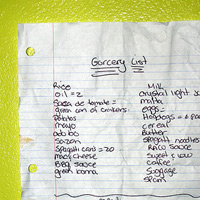 Gorcery List
Rice
oil = 2
Salsa de tomate =
green can of crakers
Potatos
mayo
adobo
Sazon
Spagatti cans = 20
mac & cheese
BBQ sauce
green banna
Milk
crystal light
malta
eggs
Hotdogs =
cereal
Butter
spagatti noodles
Raco sauce
sweet & low
coffee
Suggage
Spam